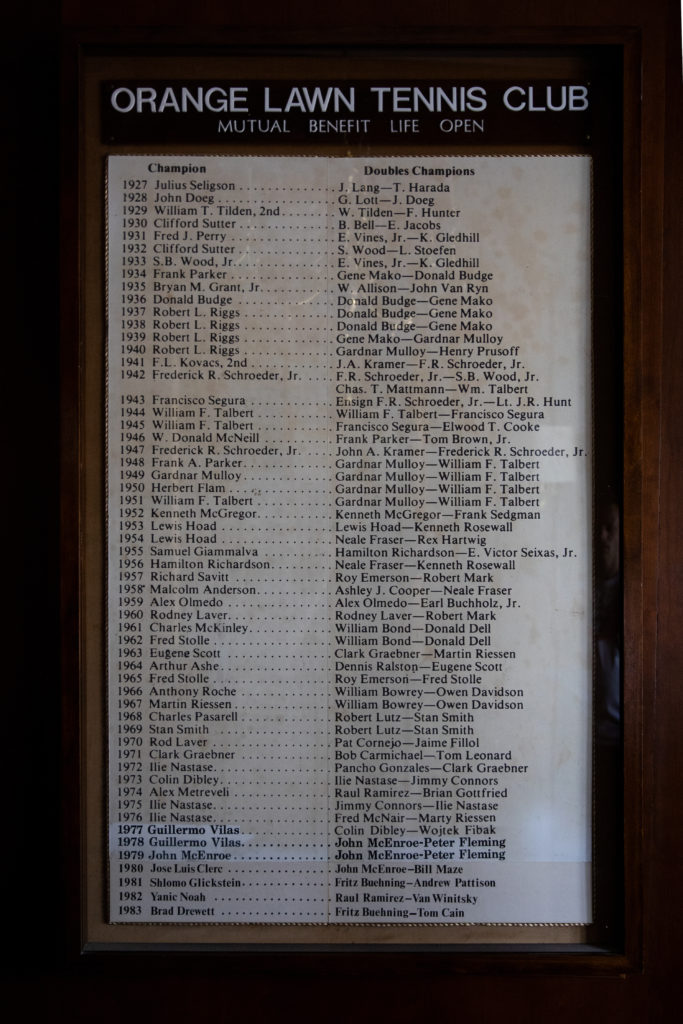 ORANGE LAWN TENNIS CLUB
MUTUAL BENEFIT LIFE OPEN
Champion Doubles Champions
1927 Julius Seligson . . . . . . . . . . . . . J. Lang—T. Harada
1928 John Doeg . . . . . . . . . . . . . . . . G. Lott—J. Doeg
1929 William T. Tilden, 2nd . . . . . . . . W. Tilden—F. Hunter
1930 Clifford Sutter . . . . . . . . . . . . . . B. Bell—E. Jacobs
1931 Fred J. Perry . . . . . . . . . . . . . . . E. Vines, Jr.—K. Gledhill
1932 Clifford Sutter . . . . . . . . . . . . . . S. Wood—L. Stoefen
1933 S.B. Wood, Jr. . . . . . . . . . . . . . . E. Vines, Jr.—K. Gledhill
1934 Frank Parker . . . . . . . . . . . . . . . Gene Mako—Donald Budge
1935 Bryan M. Grant, Jr. . . . . . . . . . . . W. Allison—John Van Ryn
1936 Donald Budge . . . . . . . . . . . . . . Donald Budge—Gene Mako
1937 Robert L. Riggs . . . . . . . . . . . . . Donald Budge—Gene Mako
1938 Robert L. Riggs . . . . . . . . . . . . . Donald Budge—Gene Mako
1939 Robert L. Riggs . . . . . . . . . . . . . Gene Mako—Gardnar Mulloy
1940 Robert L. Riggs . . . . . . . . . . . . . Gardnar Mulloy—Henry Prusoff
1941 F.L. Kovacs, 2nd . . . . . . . . . . . . J.A. Kramer—F.R. Schroeder, Jr.
1942 Frederick R. Schroeder, Jr. . . . . . F.R. Schroeder, Jr.—S.B. Wood, Jr.
Chas. T. Mattmann—Wm. Talbert
1943 Francisco Segura . . . . . . . . . . . . Ensign F.R. Schroeder, Jr.—Lt. J.R. Hunt
1944 William F. Talbert . . . . . . . . . . . William F. Talbert—Francisco Segura
1945 William F. Talbert . . . . . . . . . . . Francisco Segura—Elwood T. Cooke
1946 W. Donald McNeill . . . . . . . . . . Frank Parker—Tom Brown, Jr.
1947 Frederick R. Schroeder, Jr. . . . . . John A. Kramer—Frederick R. Schroeder, Jr.
1948 Frank A. Parker . . . . . . . . . . . . . Gardnar Mulloy—William F. Talbert
1949 Gardnar Mulloy . . . . . . . . . . . . . Gardnar Mulloy—William F. Talbert
1950 Herbert Flam . . . . . . . . . . . . . . . Gardnar Mulloy—William F. Talbert
1951 William F. Talbert . . . . . . . . . . . Gardnar Mulloy—William F. Talbert
1952 Kenneth McGregor . . . . . . . . . . . Kenneth McGregor—Frank Sedgman
1953 Lewis Hoad . . . . . . . . . . . . . . . . Lewis Hoad—Kenneth Rosewall
1954 Lewis Hoad . . . . . . . . . . . . . . . . Neale Fraser—Rex Hartwig
1955 Samuel Giammalva . . . . . . . . . . . Hamilton Richardson—E. Victor Seixas, Jr.
1956 Hamilton Richardson . . . . . . . . . Neale Fraser—Kenneth Rosewall
1957 Richard Savitt . . . . . . . . . . . . . . Roy Emerson—Robert Mark
1958 Malcolm Anderson . . . . . . . . . . . Ashley J. Cooper—Neale Fraser
1959 Alex Olmedo . . . . . . . . . . . . . . . Alex Olmedo—Earl Buchholz, Jr.
1960 Rodney Laver . . . . . . . . . . . . . . . Rodney Laver—Robert Mark
1961 Charles McKinley . . . . . . . . . . . . William Bond—Donald Dell
1962 Fred Stolle . . . . . . . . . . . . . . . . . William Bond—Donald Dell
1963 Eugene Scott . . . . . . . . . . . . . . . Clark Graebner—Martin Riessen
1964 Arthur Ashe . . . . . . . . . . . . . . . . Dennis Ralston—Eugene Scott
1965 Fred Stolle . . . . . . . . . . . . . . . . . Roy Emerson—Fred Stolle
1966 Anthony Roche . . . . . . . . . . . . . William Bowrey—Owen Davidson
1967 Martin Riessen . . . . . . . . . . . . . . William Bowrey—Owen Davidson
1968 Charles Pasarell . . . . . . . . . . . . . Robert Lutz—Stan Smith
1969 Stan Smith . . . . . . . . . . . . . . . . . Robert Lutz—Stan Smith
1970 Rod Laver . . . . . . . . . . . . . . . . . Pat Cornejo—Jaime Fillol
1971 Clark Graebner . . . . . . . . . . . . . Bob Carmichael—Tom Leonard
1972 Ilie Nastase . . . . . . . . . . . . . . . . Pancho Gonzales—Clark Graebner
1973 Colin Dibley . . . . . . . . . . . . . . . . Ilie Nastase—Jimmy Connors
1974 Alex Metreveli . . . . . . . . . . . . . . Raul Ramirez—Brian Gottfried
1975 Ilie Nastase . . . . . . . . . . . . . . . . Jimmy Connors—Ilie Nastase
1976 Ilie Nastase . . . . . . . . . . . . . . . . Fred McNair—Marty Riessen
1977 Guillermo Vilas . . . . . . . . . . . . . Colin Dibley—Wojtek Fibak
1978 Guillermo Vilas . . . . . . . . . . . . . John McEnroe-Peter Fleming
1979 John McEnroe . . . . . . . . . . . . . . John McEnroe-Peter Fleming
1980 Jose Luis Clerc . . . . . . . . . . . . . . John McEnroe—Bill Maze
1981 Shlomo Glickstein . . . . . . . . . . . . Fritz Buehning—Andrew Pattison
1982 Yanic Noah . . . . . . . . . . . . . . . . Raul Ramirez—Van Winitsky
1983 Brad Drewett . . . . . . . . . . . . . . . Fritz Buehning—Tom Cain